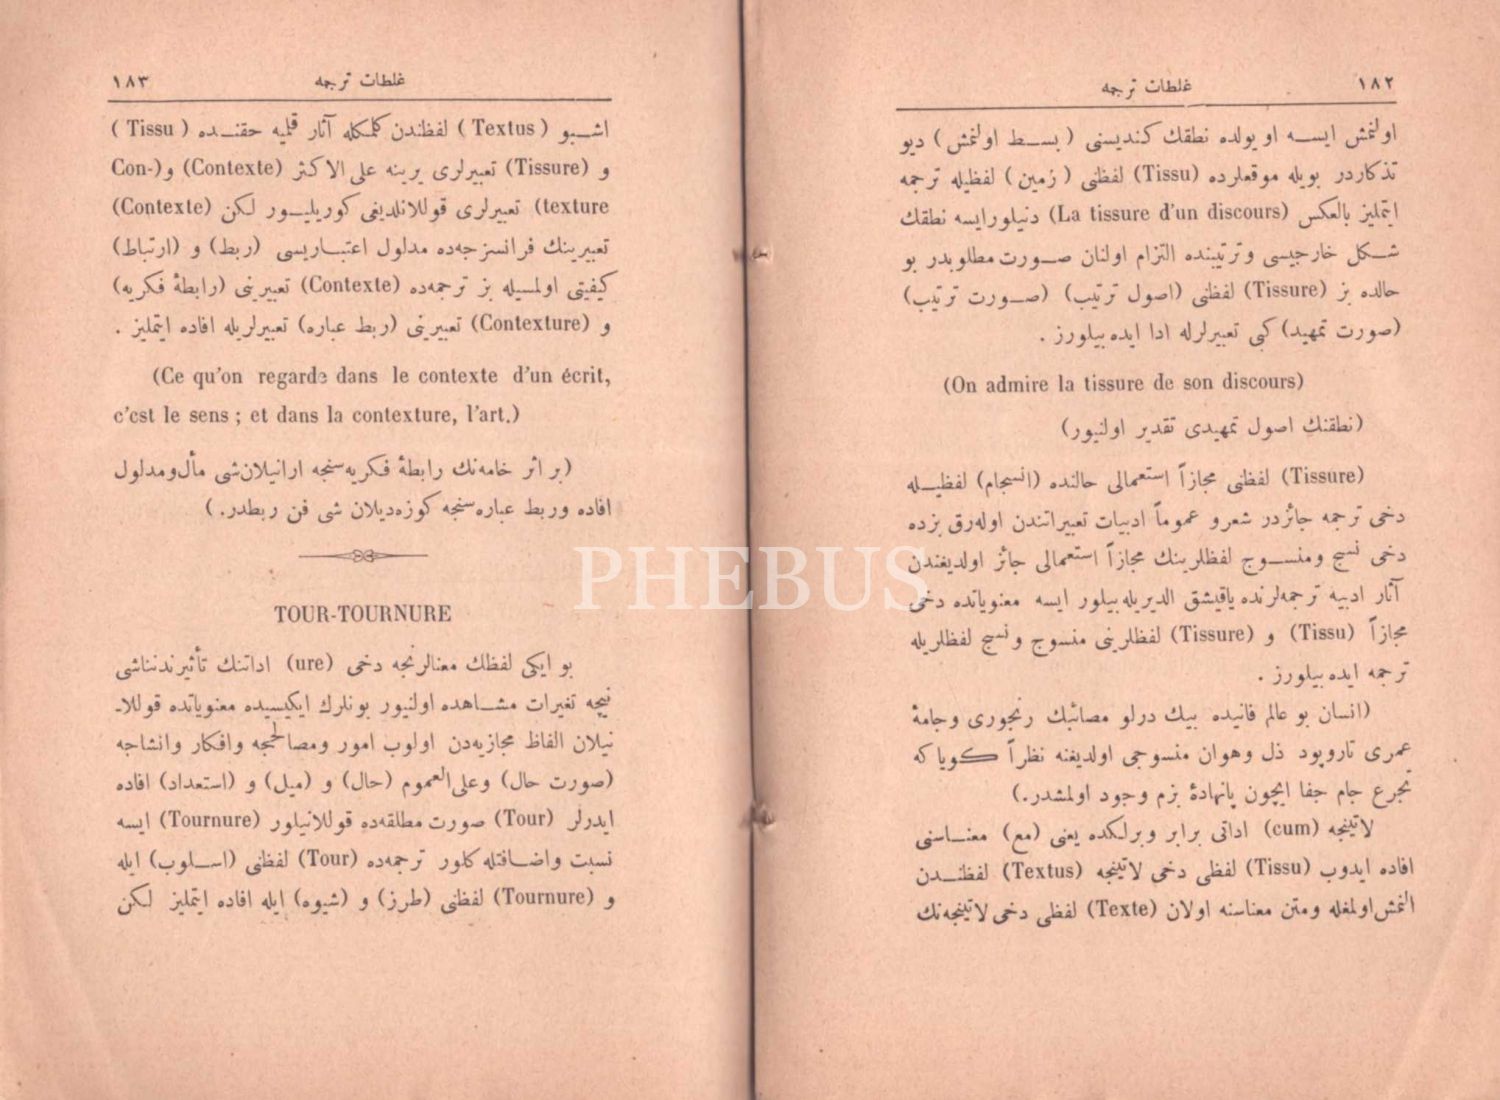 ١٨٢ غلطات ترجمه
اولنمش ايسه او يولده نطقك كنديسنى (بسط اولنمش) ديو
تذكاردر بويله موقعلرده (Tissu) لفظنى (زمين) لفظيله ترجمه
ايتمليز بالعكس (La tissure d'un discours) دنيلورايسه نطقك
شكل خارجيسى وترتيبنده التزام اولنان صورت مطلوبدر بو
حالده بز (Tissure) لفظنى (اصول ترتيب) (صورت ترتيب)
(صورت تمهيد) كبى تعبيرلرله ادا ايده بيلورز .
(On admire la tissure de son discours)
(نطقنك اصول تمهيدى تقدير اولنيور)
(Tissure) لفظنى مجازاً استعمالى حالنده (انسجام) لفظيله
دخى ترجمه جائزدر شعرو عموماً ادبيات تعبيراتندن اوله‌رق بزده
دخى نسج ومنسوج لفظلرينك مجازاً استعمالى جائز اولديغندن
آثار ادبيه ترجمه‌لرنده ياقيشق الديريله بيلور ايسه معنوياتده دخى
مجازاً (Tissu) و (Tissure) لفظلرينى منسوج و نسج لفظلريله
ترجمه ايده بيلورز .
(انسان بو عالم فانيده بيك درلو مصائبك رنجورى وجامهٔ
عمرى تاروپود ذل وهوان منسوجى اولديغنه نظراً كويا كه
تجرع جام جفا ايچون پانهادهٔ بزم وجود اولمشدر.)
لاتينجه (cum) اداتى برابر وبرلكده يعنى (مع) معناسنى
افاده ايدوب (Tissu) لفظى دخى لاتينجه (Textus) لفظندن
النمش‌اولمغله ومتن معناسنه اولان (Texte) لفظى دخى لاتينجه‌نك
غلطات ترجمه ١٨٣
اشبو (Textus) لفظندن كلمكله آثار قلميه حقنده (Tissu)
و (Tissure) تعبيرلرى يرينه على الاكثر (Contexte) و(Con-
texture) تعبيرلرى قوللانلديغى كوريليور لكن (Contexte)
تعبيرينك فرانسزجه‌ده مدلول اعتباريسى (ربط) و (ارتباط)
كيفيتى اولمسيله بز ترجمه‌ده (Contexte) تعبيرينى (رابطهٔ فكريه)
و (Contexture) تعبيرينى (ربط عباره) تعبيرلريله افاده ايتمليز .
(Ce qu'on regarde dans le contexte d'un écrit,
c'est le sens ; et dans la contexture, l'art.)
(بر اثر خامه‌نك رابطهٔ فكريه‌سنجه ارانيلان‌شى مأل‌ومدلول
افاده وربط عباره‌سنجه كوزه‌ديلان شى فن ربطدر.)
TOUR-TOURNURE
بو ايكى لفظك معنالرنجه دخى (ure) اداتنك تأثيرندن‌ناشى
نيجه تغيرات مشاهده اولنيور بونلرك ايكيسيده معنوياتده قوللا-
نيلان الفاظ مجازيه‌دن اولوب امور ومصالحجه وافكار وانشاجه
(صورت حال) وعلى‌العموم (حال) و (ميل) و (استعداد) افاده
ايدرلر (Tour) صورت مطلقه‌ده قوللانيلور (Tournure) ايسه
نسبت واضافتله كلور ترجمه‌ده (Tour) لفظنى (اسلوب) ايله
و (Tournure) لفظنى (طرز) و (شيوه) ايله افاده ايتمليز لكن
PHEBUS